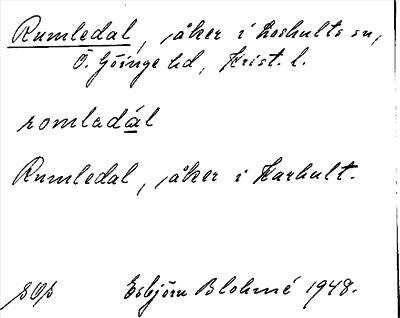 Rumledal, åker i Loshults sn,
Ö. Göinge hd, Krist. l.
romladál
Rumledal, åker i Harhult.
Esbjörn Blohmé 1948.